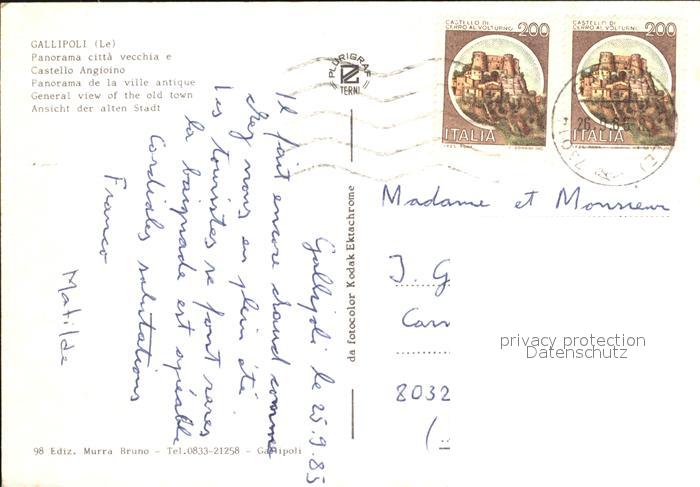 GALLIPOLI (Le)
Panorama città vecchia e
Castello Angioino
Panorama de la ville antique
General view of the old town
Ansicht der alten Stadt
PLURIGRAF
TERNI
CASTELLO DI
CERRO AL VOLTURNO 200
ITALIA
CASTELLO DI
CERRO AL VOLTURNO 200
ITALIA
Gallipoli le 25.9.85
Il fait encore chaud comme
chez nous en plein été.
Les touristes se font rares
la baignade est agréable
Cordiales salutations
Franco
Matilde
da fotocolor Kodak Ektachrome
Madame et Monsieur
J. G
8032
privacy protection
Datenschutz
98 Ediz. Murra Bruno - Tel.0833-21258 - Gallipoli